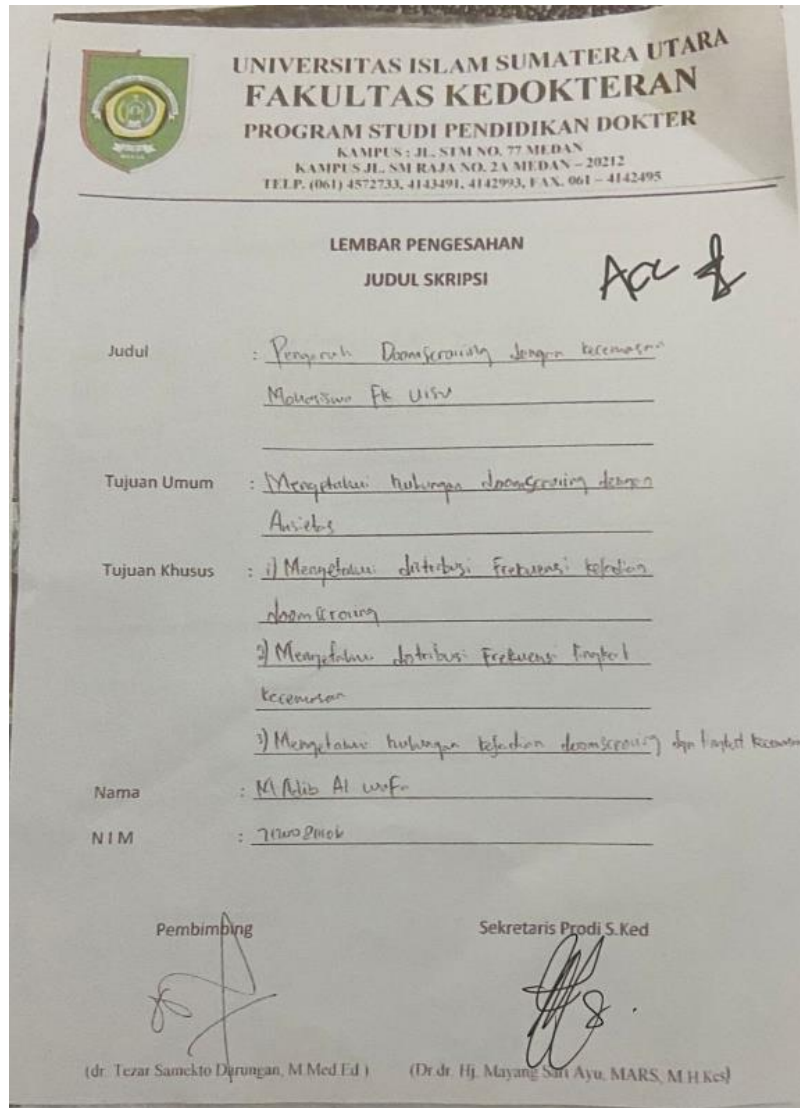 UNIVERSITAS ISLAM SUMATERA UTARA
FAKULTAS KEDOKTERAN
PROGRAM STUDI PENDIDIKAN DOKTER
KAMPUS : JL. STM NO. 77 MEDAN
KAMPUS JL. SM RAJA NO. 2A MEDAN – 20212
TELP. (061) 4572733, 4143491, 4142993, FAX. 061 – 4142495
LEMBAR PENGESAHAN
JUDUL SKRIPSI
Acc
Judul : Pengaruh Doomscrolling dengan kecemasan
Mahasiswa FK UISU
Tujuan Umum : Mengetahui hubungan doomscrolling dengan
Ansietas
Tujuan Khusus : 1) Mengetahui distribusi Frekuensi kejadian
doomscrolling
2) Mengetahui distribusi Frekuensi tingkat
kecemasan
3) Mengetahui hubungan kejadian doomscrolling dgn tingkat kecemasan
Nama : M Adib Al wafa
NIM :
Pembimbing
Sekretaris Prodi S.Ked
(dr. Tezar Samekto Darungan, M.Med.Ed )
(Dr.dr. Hj. Mayang Sari Ayu, MARS, M.H.Kes)